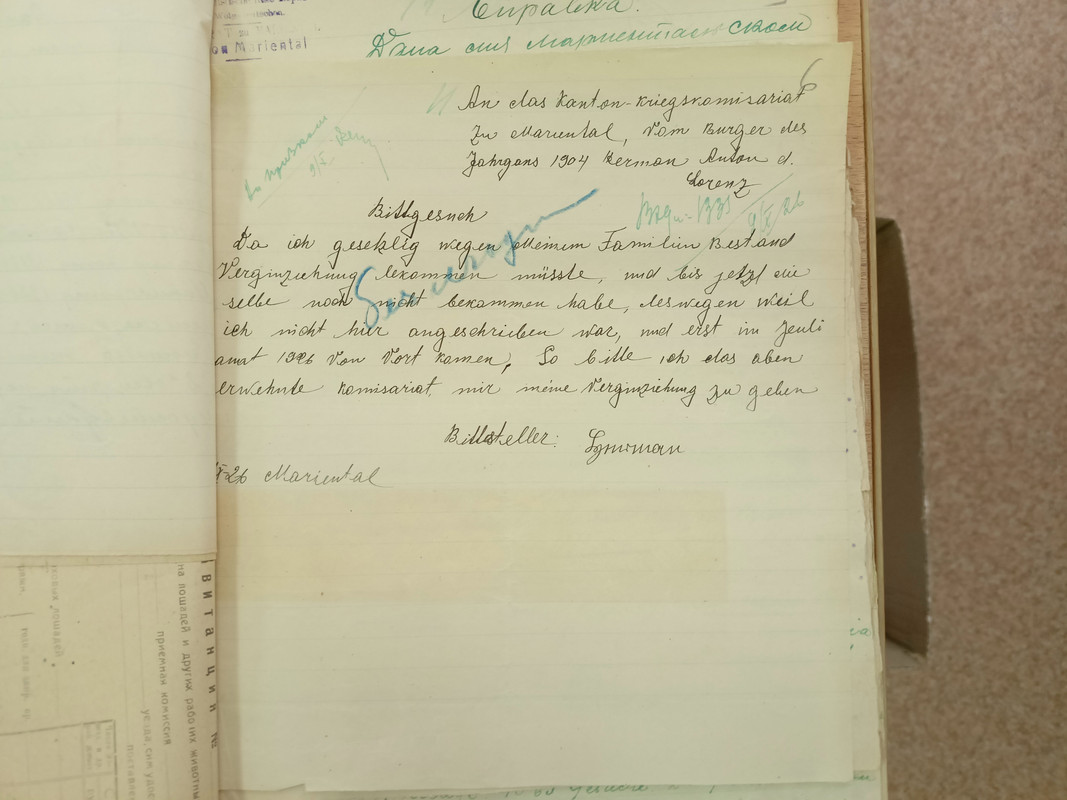 Mariental
Справка.
Дана сия Мариентальском
6
An das Kanton-Kriegskomisariat
zu Mariental, vom Burger des
Jahrgans 1904 Herman Anton d.
Lorenz
Bittgesuch
Da ich gesetzlig wegen meinem Familien Bestand
Verginziehung bekommen müsste, und bis jetzt die
selbe noch nicht bekommen habe, deswegen weil
ich nicht hier angeschrieben war, und erst im Jeuli
1926 von Dort kamen, So bitte ich das oben
erwehnte Komisariat, mir meine Verginziehung zu geben
Bittsteller:
26 Mariental
витанции №
на лошадей и других рабочих животн
приемная комиссия
уезда, сим удос